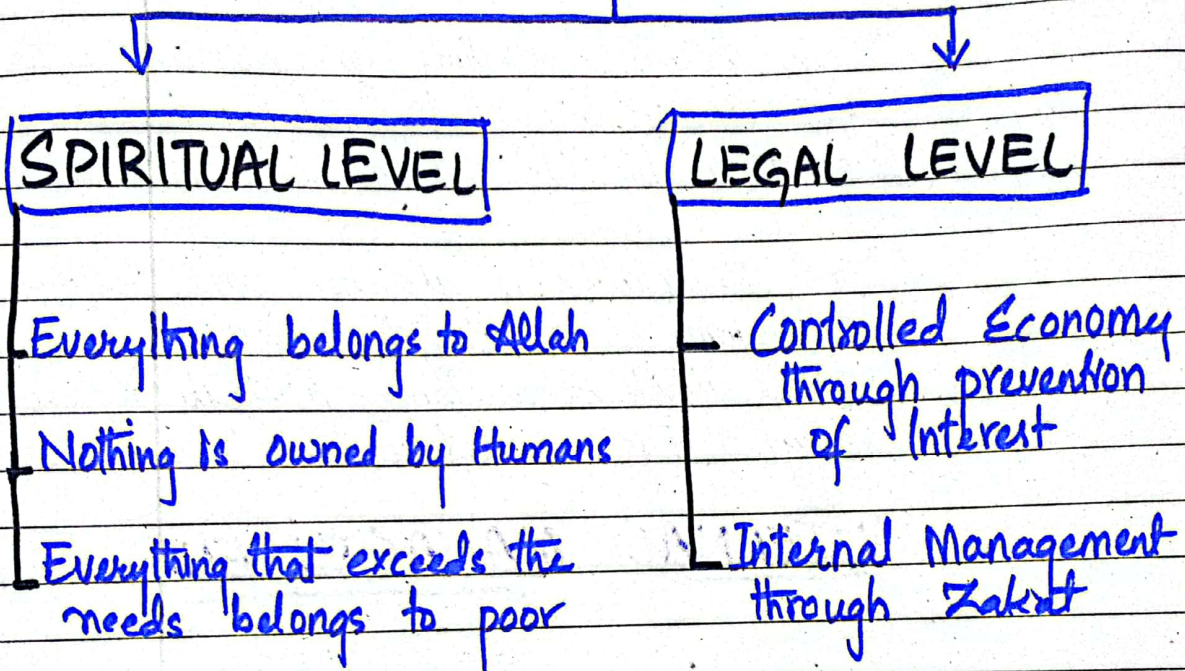 SPIRITUAL LEVEL
Everything belongs to Allah
Nothing is owned by Humans
Everything that exceeds the
needs belongs to poor
LEGAL LEVEL
Controlled Economy
through prevention
of Interest
Internal Management
through Zakat